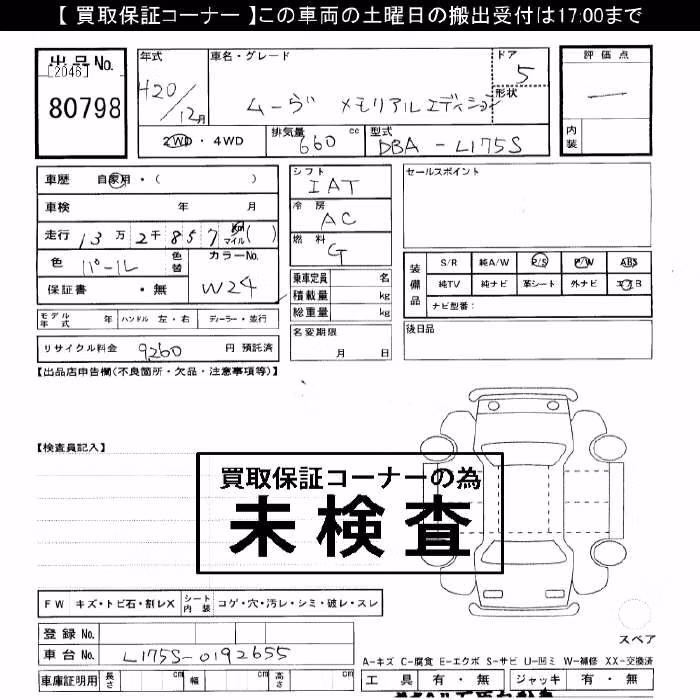 【 買取保証コーナー 】この車両の土曜日の搬出受付は17:00まで
出品No.
[2046]
80798
年式
H20/12月
車名・グレード
ムーヴ メモリアルエディション
ドア
5
形状
評価点
内装
2WD・4WD
排気量
660 cc
型式
DBA-L175S
車歴 自家用・( )
車検 年 月
走行 13万2千857 km マイル ( )
色 パール 色替
カラーNo.
W24
保証書 ・無
モデル年式 年 ハンドル 左・右 ディーラー・並行
リサイクル料金 9260 円 預託済
シフト
IAT
冷房
AC
燃料
G
乗車定員 名
積載量 kg
総重量 kg
名変期限
月 日
セールスポイント
装備品
S/R 純A/W P/S P/W ABS
純TV 純ナビ 革シート 外ナビ エアB
ナビ型番:
後日品
【出品店申告欄(不良箇所・欠品・注意事項等)】
【検査員記入】
買取保証コーナーの為
未検査
FW キズ・トビ石・割レX シート内装 コゲ・穴・汚レ・シミ・破レ・スレ
登録No.
車台No. L175S-0192655
車庫証明用 長さ cm 幅 cm 高さ cm
スペア
A-キズ C-腐食 E-エクボ S-サビ U-凹ミ W-補修 XX-交換済
工具 有・無 ジャッキ 有・無